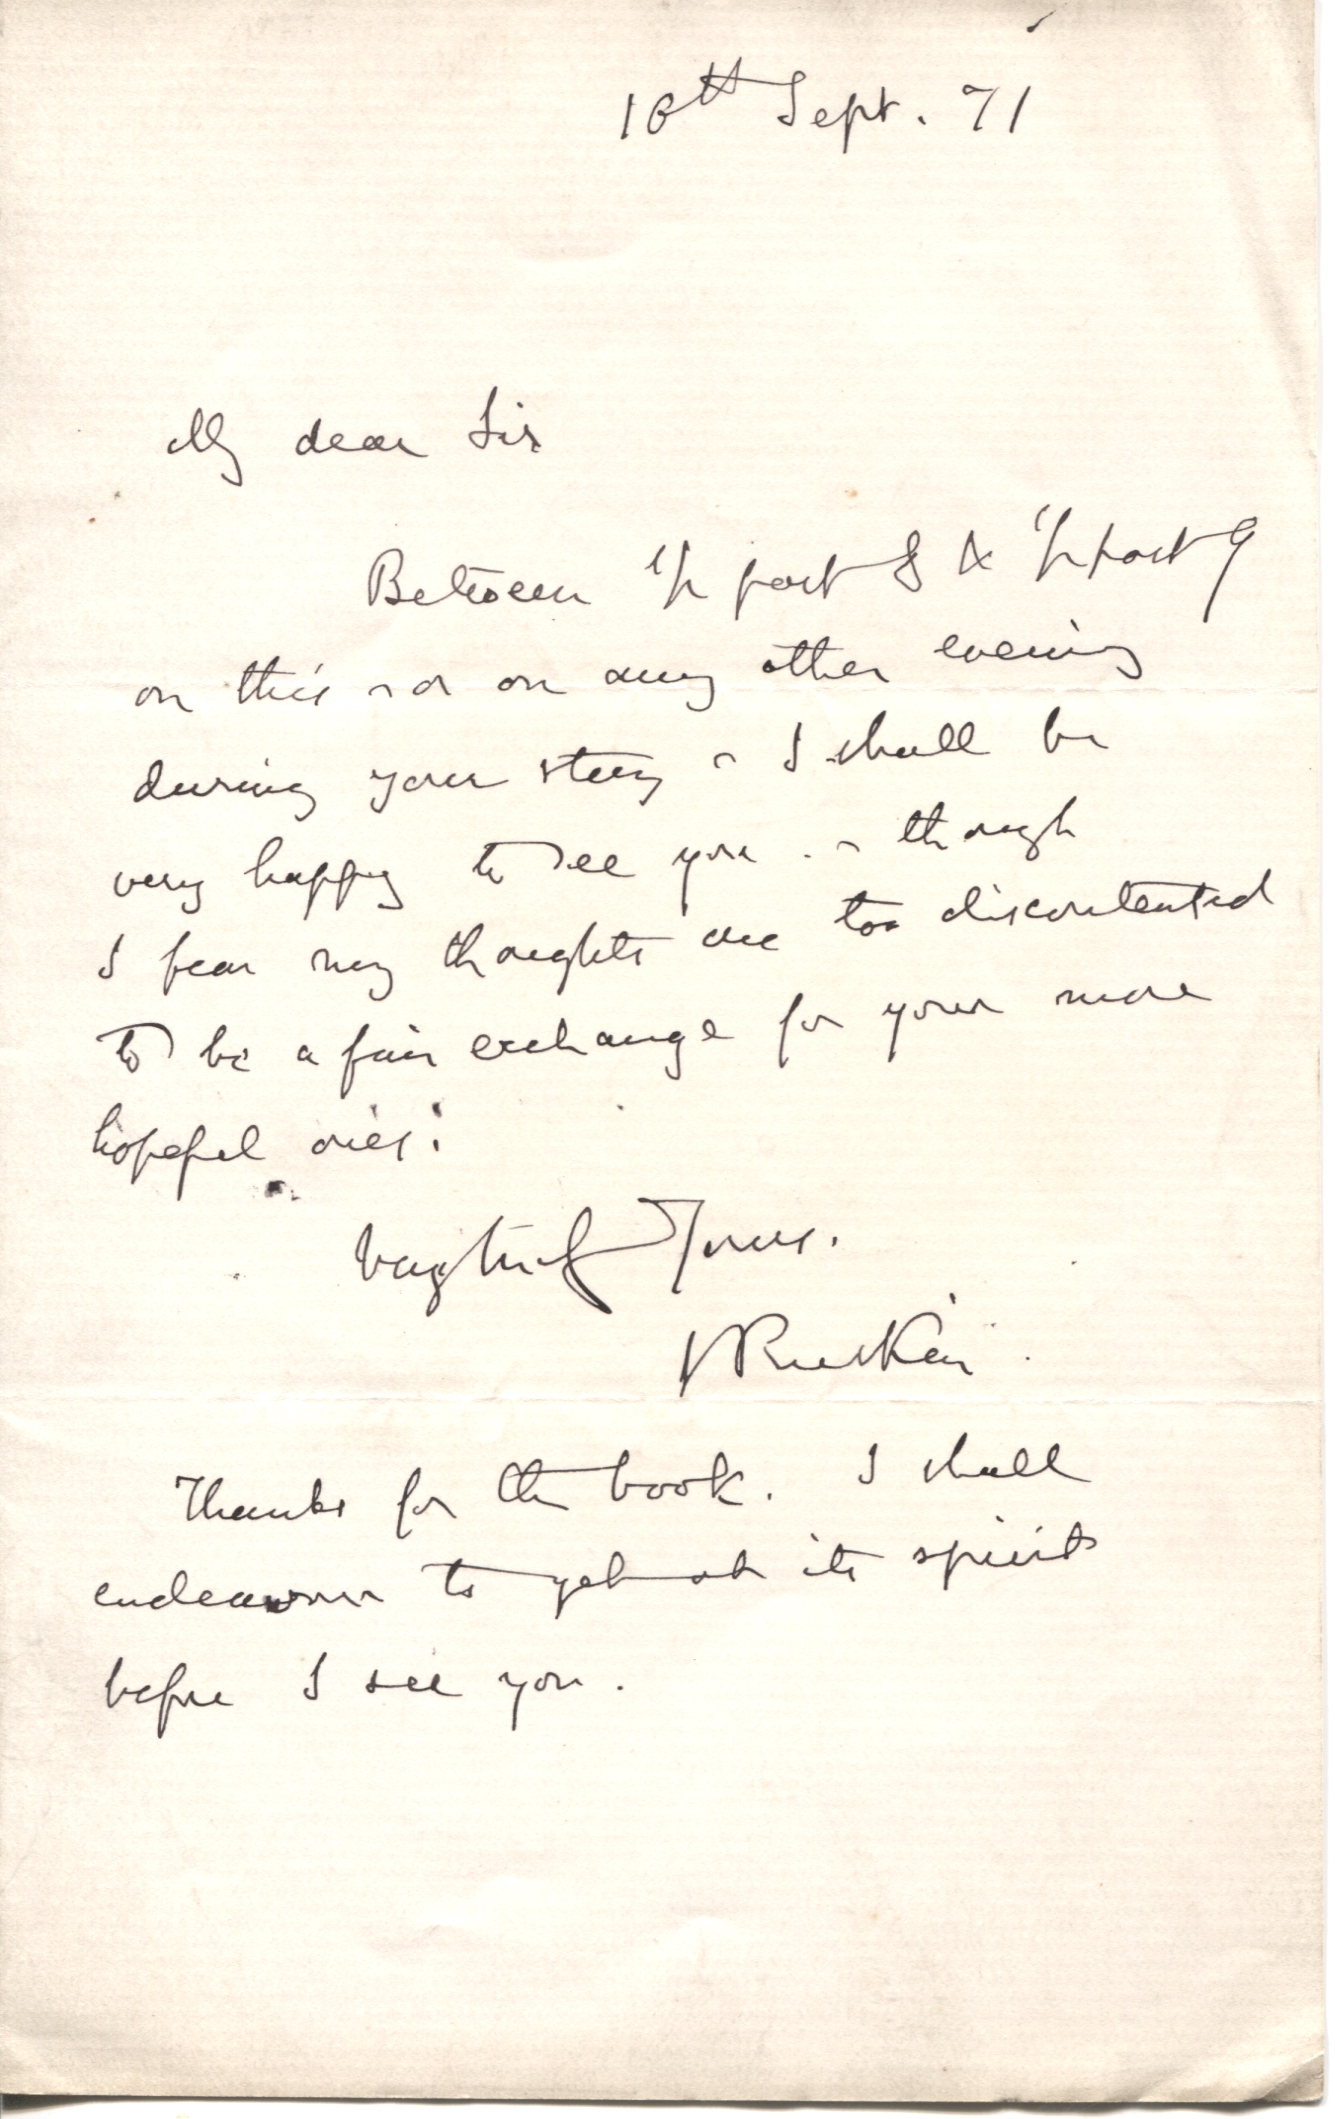 10th Sept. 71
My dear Sir
Between 1/2 past 8 & 1/2 past 9
on this - or on any other evening
during your stay - I shall be
very happy to see you. - though
I fear my thoughts are too discontented
to be a fair exchange for your more
hopeful ones:
Very truly Yours.
J Ruskin.
Thanks for the book. I shall
endeavour to get at its spirit
before I see you.